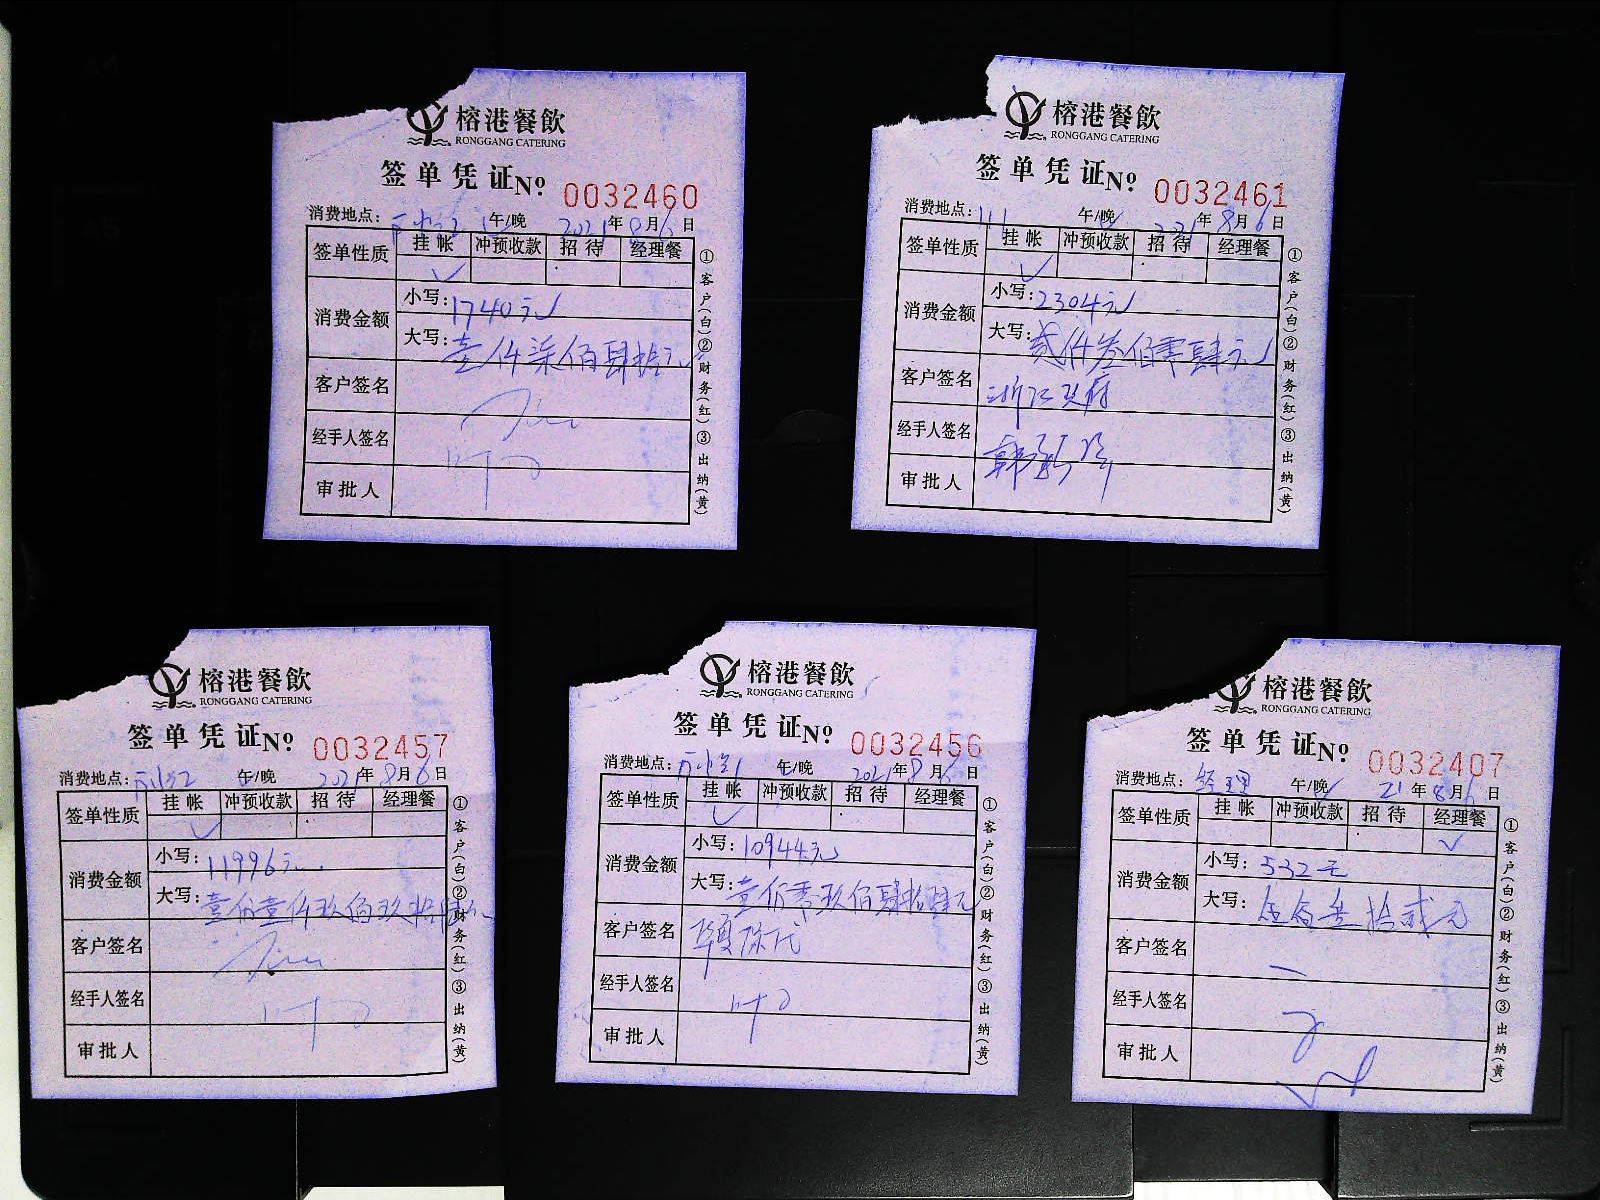 榕港餐飲
RONGGANG CATERING
签单凭证 Nº 0032460
消费地点: 午/晚 2021年8月6日
签单性质 挂帐 冲预收款 招待 经理餐
✓
消费金额 小写: 1740元
大写: 壹仟柒佰肆拾元
客户签名
经手人签名
审批人
①客户(白)②财务(红)③出纳(黄)
榕港餐飲
RONGGANG CATERING
签单凭证 Nº 0032461
消费地点: 111 午/晚 2021年8月6日
签单性质 挂帐 冲预收款 招待 经理餐
✓
消费金额 小写: 2304元
大写: 贰仟叁佰零肆元
客户签名
经手人签名
审批人
①客户(白)②财务(红)③出纳(黄)
榕港餐飲
RONGGANG CATERING
签单凭证 Nº 0032457
消费地点: 午/晚 2021年8月6日
签单性质 挂帐 冲预收款 招待 经理餐
✓
消费金额 小写: 11996元
大写: 壹万壹仟玖佰玖拾陆元
客户签名
经手人签名
审批人
①客户(白)②财务(红)③出纳(黄)
榕港餐飲
RONGGANG CATERING
签单凭证 Nº 0032456
消费地点: 午/晚 2021年8月6日
签单性质 挂帐 冲预收款 招待 经理餐
✓
消费金额 小写: 10944元
大写: 壹万零玖佰肆拾肆元
客户签名
经手人签名
审批人
①客户(白)②财务(红)③出纳(黄)
榕港餐飲
RONGGANG CATERING
签单凭证 Nº 0032407
消费地点: 经理 午/晚 21年8月6日
签单性质 挂帐 冲预收款 招待 经理餐
✓
消费金额 小写: 532元
大写: 伍佰叁拾贰元
客户签名
经手人签名
审批人
①客户(白)②财务(红)③出纳(黄)